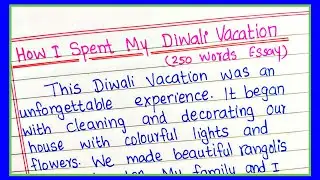 How I Spent My Diwali Vacation
(250 words Essay)
This Diwali Vacation was an
unforgettable experience. It began
with cleaning and decorating our
house with colourful lights and
flowers. We made beautiful rangolis
My family and I